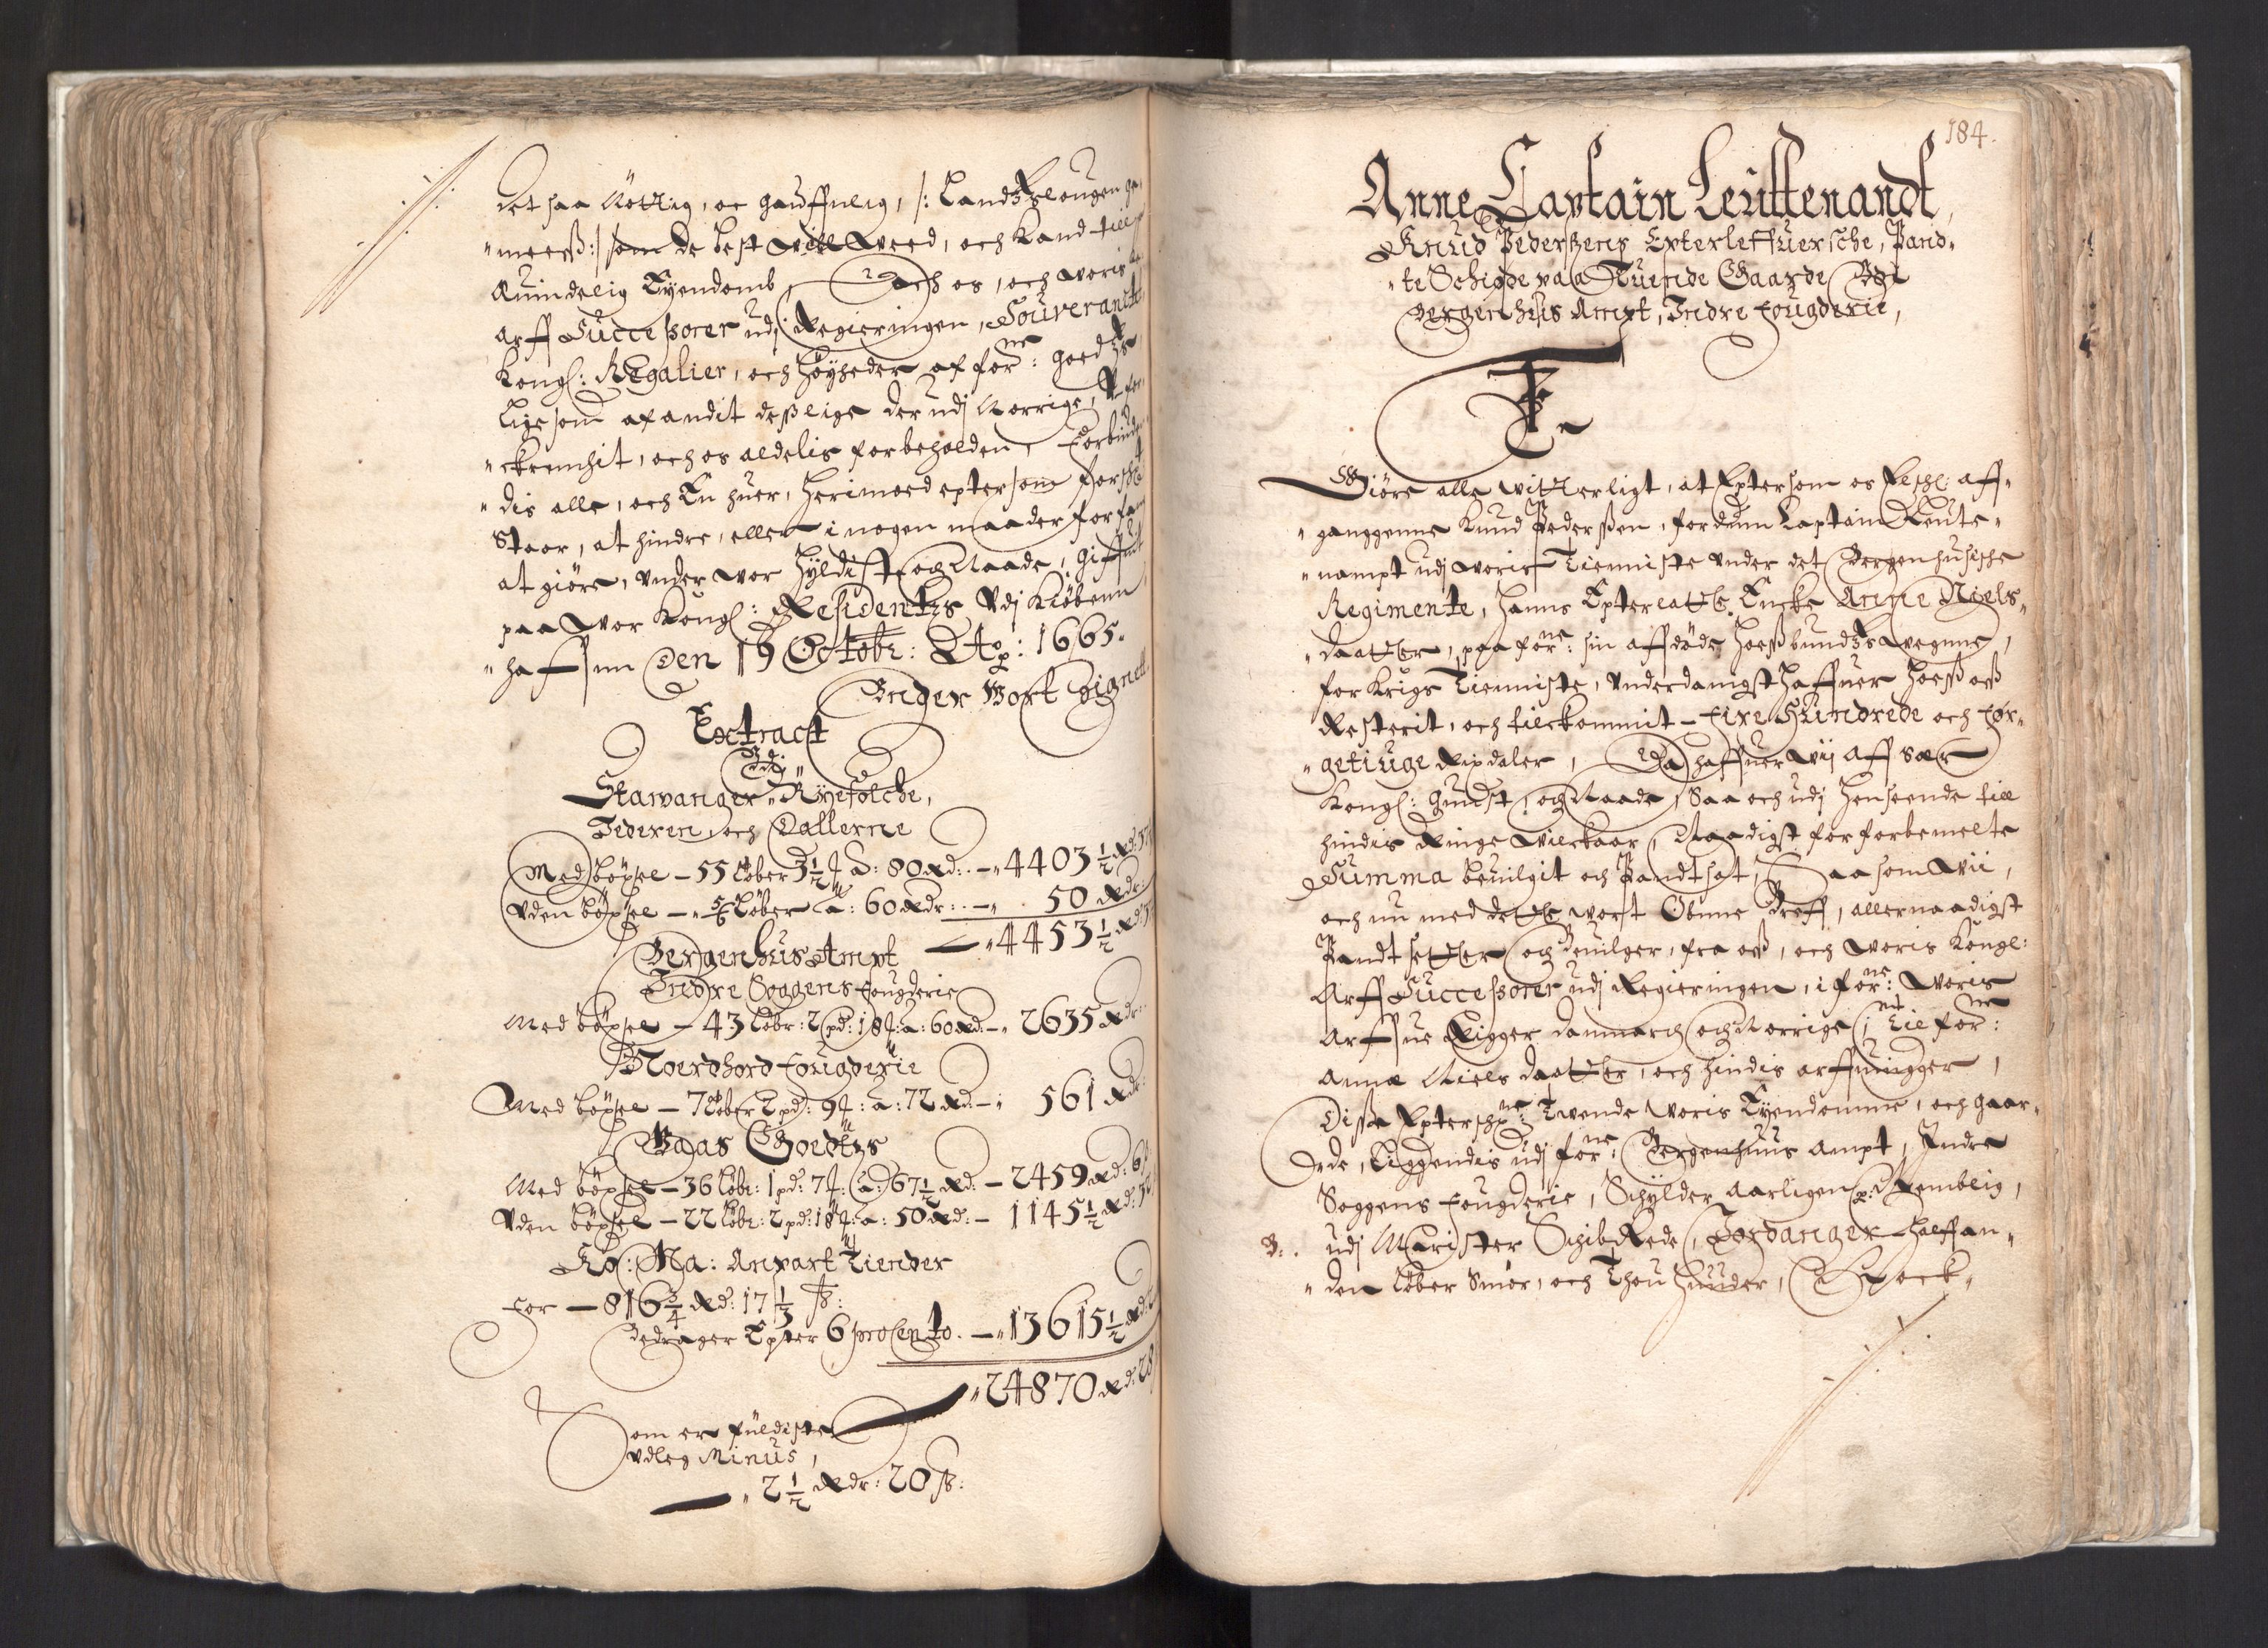 det saa Nøttig, oc gauffnlig, /: Landtzlougen ge-
"meeß :/ som de best vill weed, och kand till
Quindelig Eyendomb, Dach os, och woris
arff Successorer udj Regieringen, Souveranitet
Kongl: Regalier, och Høyheder af forne: goedtz
Lige som af andit deßlige der udj Norrige, V-for-
"ckrenchit, och os aldelis forbeholden, Forbiud-
"dis alle, och En huer, herimoed eptersom forschr
Staar, at hindre, eller i nogen maader forfang
at giøre, vnder vor Hyldist och Naade, Giffuit
paa Wor Kongl: Residentz Vdj Kiøbenn
"haffun Den 19 Octobr: Ao: 1665.
Vnder Vort Signett
Extract
Vdj
Stawanger, Ryefølche,
Jederen, och Dallerne
Med bøxsel – 55 Løber 3½ ʠ a: 80 Rd: – "4403½ Rd:
Vden bøxsel – " 5/6 Løber a: 60 Rdr: – " 50 Rdr:
– "4453½ Rd:
Bergenhus Ampt
Indre Soggens Fougderie
Med bøxsel – 43 Løbr: 2 pd: 18 ʠ: a: 60 Rd: – " 2635 Rdr:
Noerdhord Fougderie
Med bøxsel – 7 Løber 2 pd: 9 ʠ: a: 72 Rd: – " 561 Rdr:
Vaas Goedtz
Med bøxsel – 36 Løbr: 1 pd: 7 ʠ: a: 67½ Rd: – 2459 Rd: 6
Vden bøxsel – 22 Løbr: 2 pd: 18 ʠ: a: 50 Rd: – 1145½ Rd:
Ko: Ma: Anpart Tiender
For – 816¾ Rd: 17⅓ ß:
Bedrager Epter 6 pro Cento. – "13615½ Rd:
"24870 Rd: 28
Som er fuldiste
vdleg Minus,
– " 2½ Rdr: 20 ß:
184.
Anne Captain Leuttenandt,
Knud Pederßens Epterleffuersche, Pand-
"te Schiøde paa Tuende Gaarde Vdi
Bergenhus Ampt, Indre Fougderie,
F 3
Giøre alle witterligt, at Eptersom os Elschl: aff-
"ganggenne Knud Pederßen, fordum Captain Leute-
"nampt udj woris Tienniste vnder det Bergenhusische
Regimente, hanns Epterlatte Encke Anne Niels-
"daatter, paa forne: sin affdøde Hoeßbundtz wegnne,
for Krigs Tienniste, vnderdanigst haffuer hoeß oß
Resterit, och tilckommit – Fire Hundrede och Før-
"getiuge Rixdaler, Da haffuer wij aff sær
Kongl: Gunst, och Naade, Saa och udj henseende till
hindis Ringe Wilckaar, Naadigst for forbemelte
Summa bevilgit och Pandtsat, Saasom Wii,
och nu med dette vort Obnne Breff, allernaadigst
Pandtsetter och Bevilger, fra oß, och woris Kongl:
Arff Successorer udj Regieringen, i forne: Woris
Arffue Rigger Danmarch och Norrige, til forne:
Anne Niels daatter, och hindis arffuingger,
Disse Epterschne: Twende Woris Eyendomme, och gaar-
"de, Liggendis udj forne: Bergenhuus Ampt, Indre
Soggens Fougderie, Schylder Aarligen pr: Nemblig,
B: . udj Marister Schib Rede, Jordanger halffan-
"den Løber Smør, och Thou Huuder, Grock-